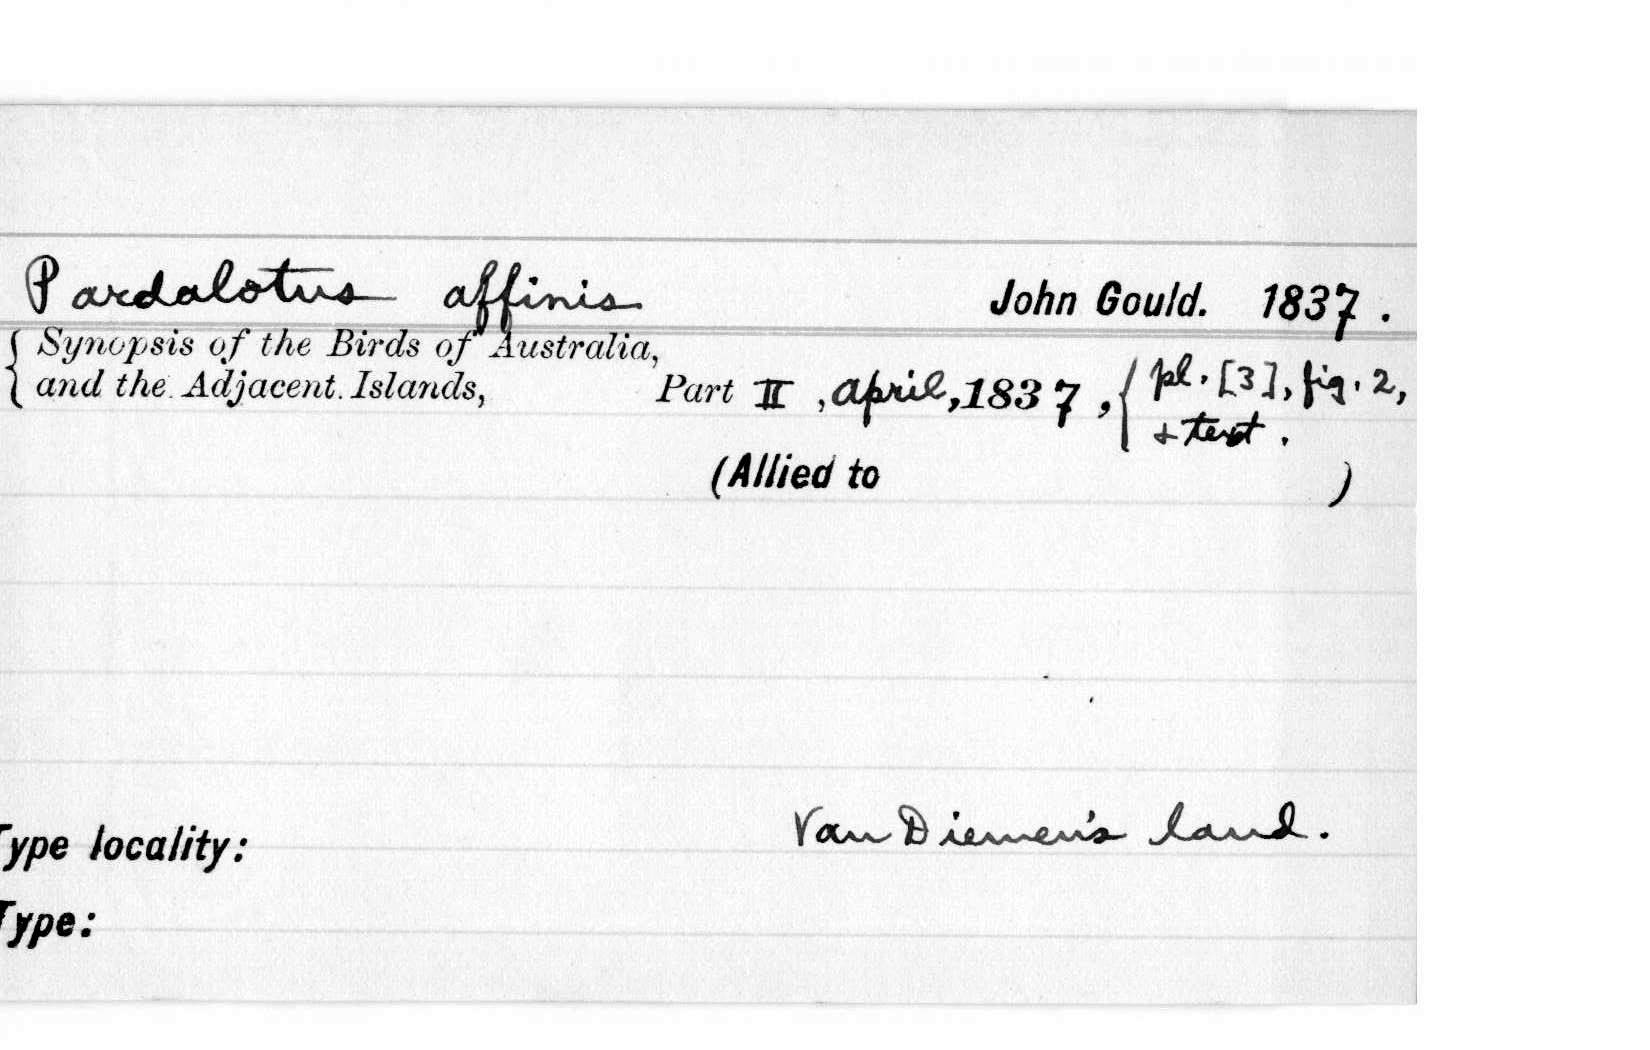 Pardalotus affinis John Gould. 1837.
{ Synopsis of the Birds of Australia,
and the Adjacent Islands, Part II, April, 1837, { pl. [3], fig. 2,
& text.
(Allied to )
Type locality: Van Diemen's land.
Type: